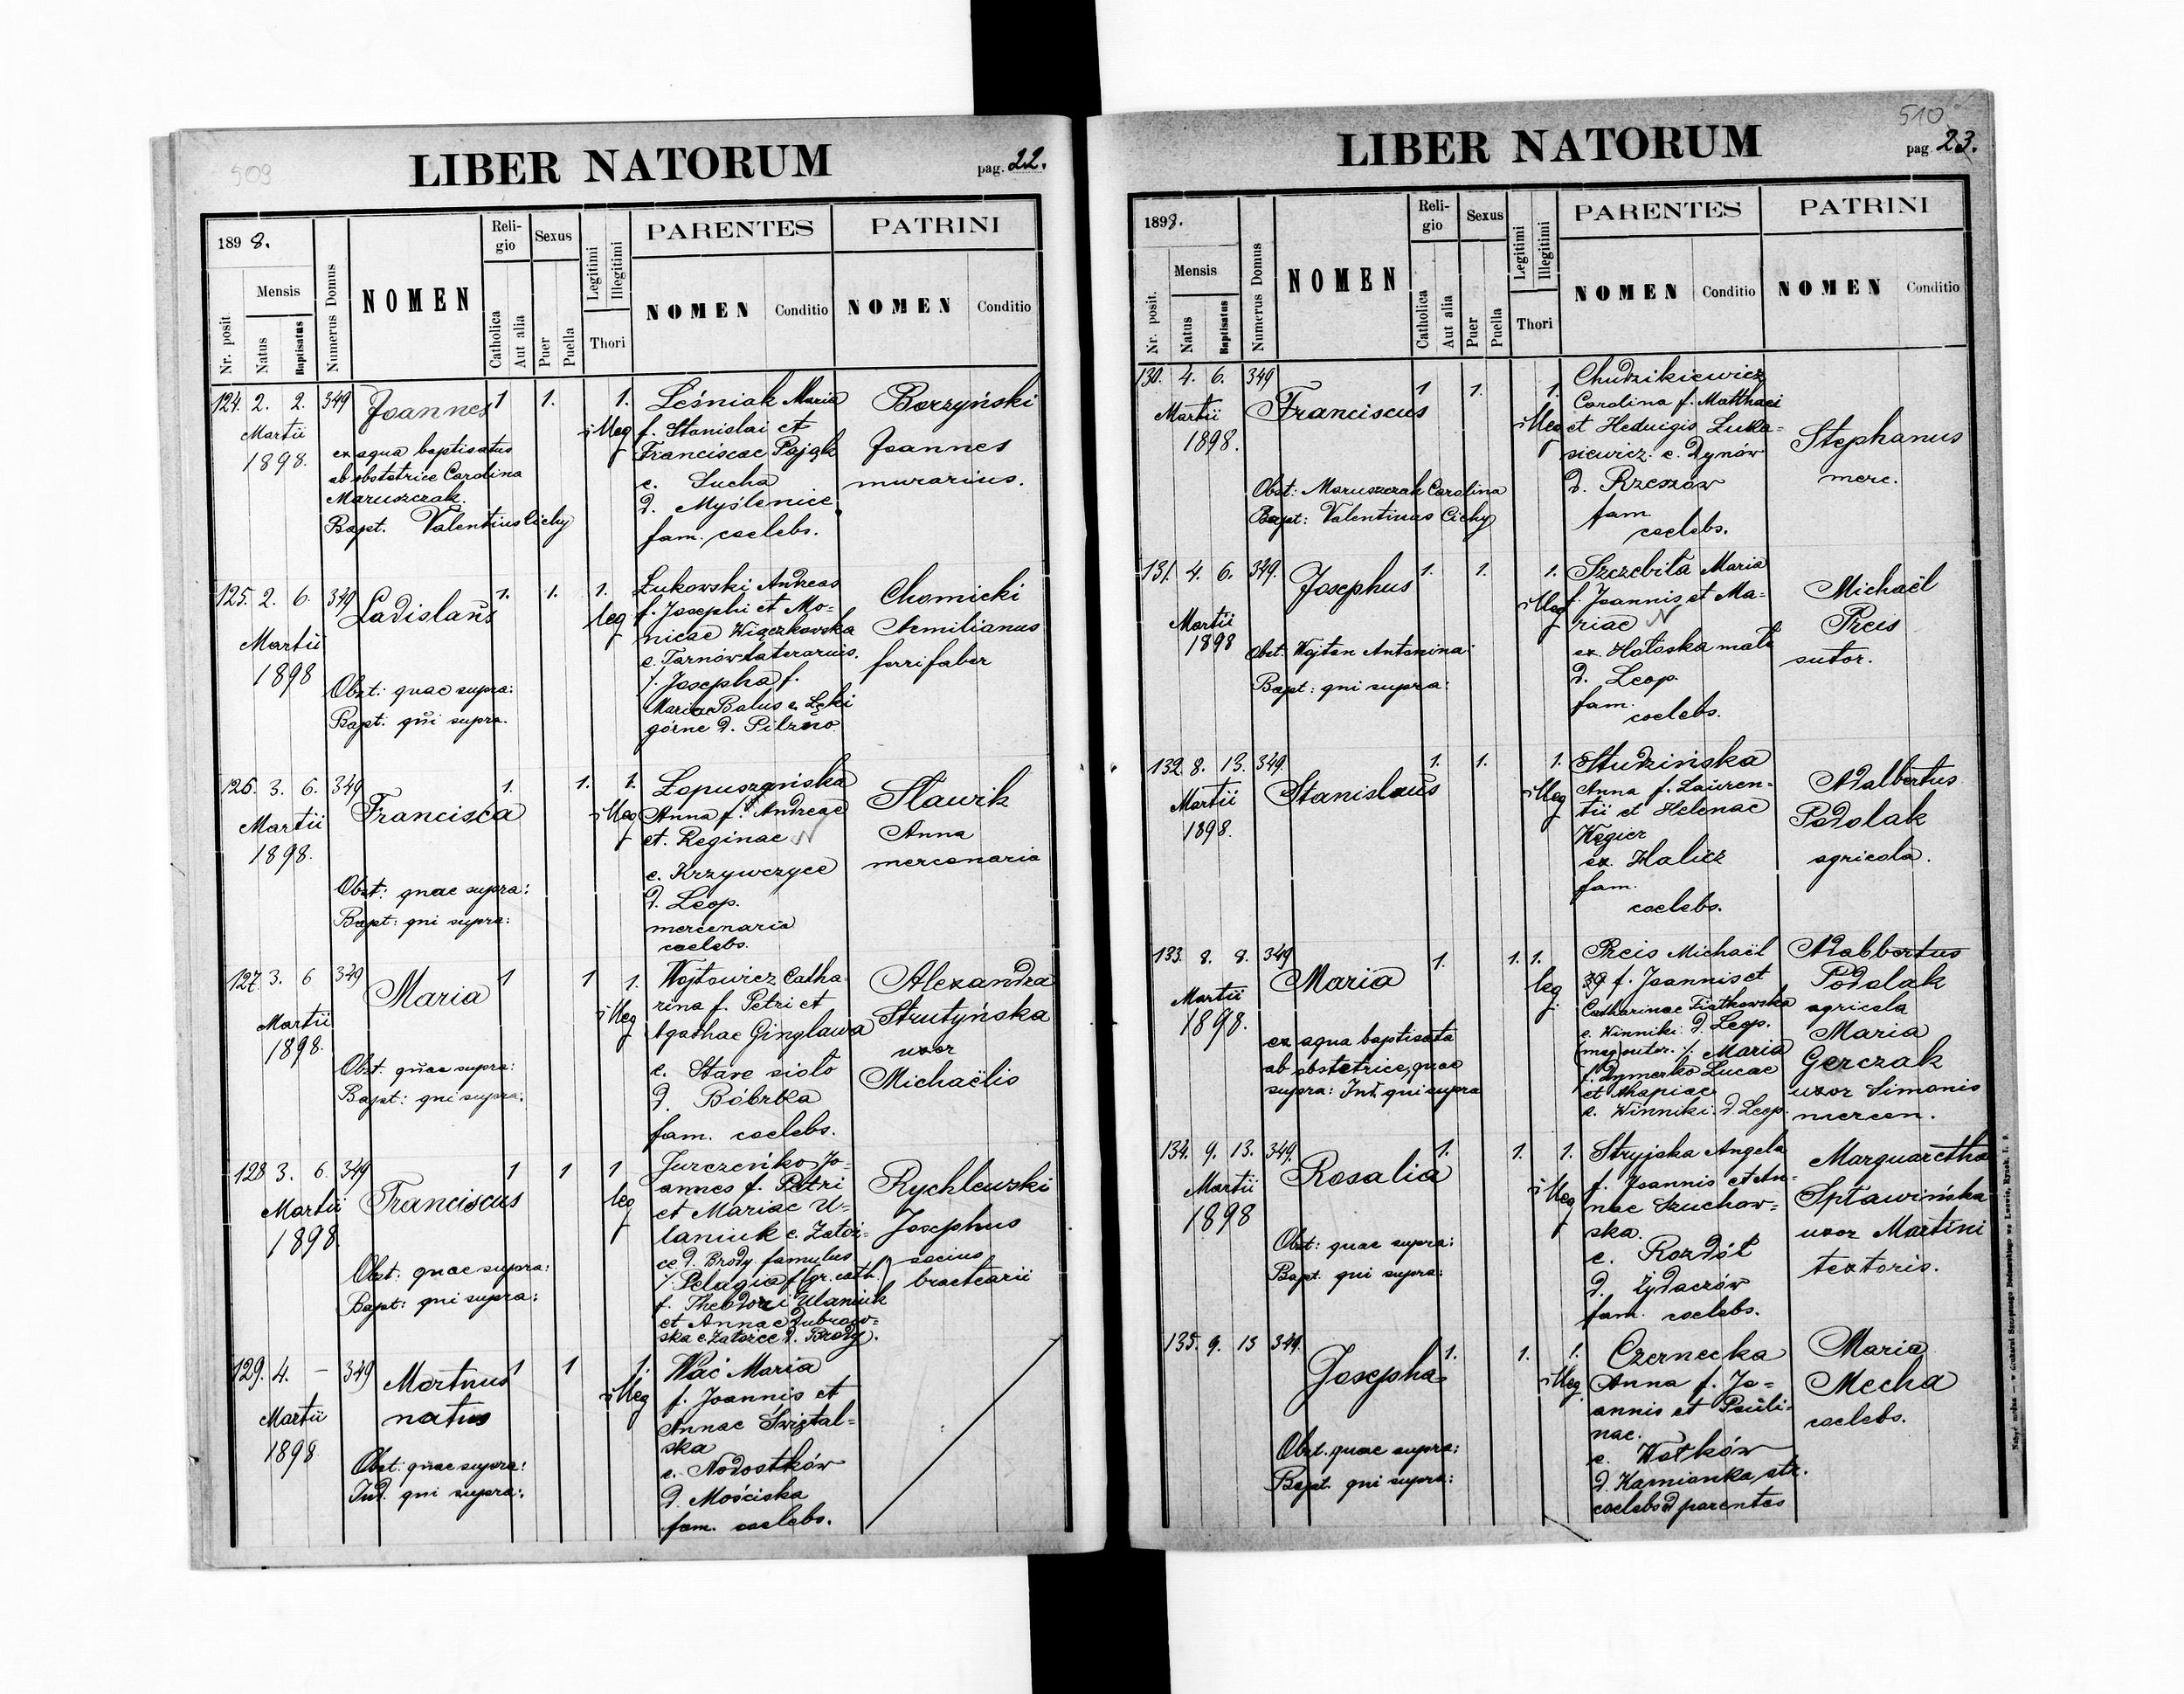 509
LIBER NATORUM
pag. 22.
1898.
Nr. posit
Mensis
Natus
Baptisatus
Numerus Domus
NOMEN
Religio
Catholica
Aut alia
Sexus
Puer
Puella
Legitimi
Illegitimi
Thori
PARENTES
NOMEN
Conditio
PATRINI
NOMEN
Conditio
124. 2. 2. 349 Joannes 1 1. 1.
Martii
1898.
illeg
ex aqua baptisatus
ab obstetrice Carolina
Maruszczak.
Bapt. Valentius Cichy
Leśniak Maria
f. Stanislai et
Franciscae Pająk
e. Sucha
d. Myślenice
fam. caelebs.
Borzyński
Joannes
murarius.
125. 2. 6. 349 Ladislaus 1. 1. 1.
Martii
1898
leg
Obst: quae supra:
Bapt: qui supra.
Łukowski Andreas
f. Josephi et Mo-
nicae Wiączkowska
e. Tarnów laterarius.
/. Josepha f.
Mariae Balus e. Łęki
górne d. Pilzno
Chomicki
Aemilianus
ferrifaber
126. 3. 6. 349 Francisca 1. 1. 1.
Martii
1898.
illeg
Obst: quae supra:
Bapt: qui supra:
Łopuszańska
Anna f. Andreae
et. Reginae N
e. Krzywczyce
d. Leop.
mercenaria
caelebs.
Stawik
Anna
mercenaria
127. 3. 6 349 Maria 1 1 1.
Martii
1898.
illeg
Obst. quae supra:
Bapt: qui supra:
Wojtowicz Catha
rina f. Petri et
Agathae Ginglawa
e. Stare sioło
d. Bóbrka
fam. caelebs.
Alexandra
Strutyńska
uxor
Michaëlis
128 3. 6. 349 Franciscus 1 1 1
Martii
1898.
leg
Obst: quae supra:
Bapt: qui supra:
Jurczeńko Jo-
annes f. Petri
et Mariae U-
laniuk e. Załoź-
ce d. Brody famulus
/. Pelagia f (gr. cath.)
f. Theodori Ulaniuk
et Annae Dubrow-
ska e. Załoźce d. Brody.
Rychlewski
Josephus
socius
bractearii
129. 4. – 349 Mortuus 1 1 1.
natus
Martii
1898
illeg
Obst: quae supra:
Ind. qui supra:
Wać Maria
f. Joannis et
Annae Świztal-
ska
e. Nodostków
d. Mościska
fam. caelebs.
510
LIBER NATORUM
pag 23.
1898.
Nr. posit.
Mensis
Natus
Baptisatus
Numerus Domus
NOMEN
Religio
Catholica
Aut alia
Sexus
Puer
Puella
Legitimi
Illegitimi
Thori
PARENTES
NOMEN
Conditio
PATRINI
NOMEN
Conditio
130. 4. 6. 349 Franciscus 1 1. 1.
Martii
1898.
illeg
Obst: Maruszczak Carolina
Bapt: Valentinus Cichy
Chudzikiewicz
Carolina f. Matthaei
et Heduigis Łuka-
siewicz. e. Dynów
d. Rzeszów
fam
caelebs.
Stephanus
merc.
131. 4. 6. 349. Josephus 1. 1. 1.
Martii
1898
illeg
Obst. Wojton Antonina
Bapt: qui supra:
Szczebiła Maria
f. Joannis et Ma-
riae N
ex. Hołoska mała
d. Leop.
fam.
caelebs.
Michaël
Preis
sutor.
132. 8. 13. 349. Stanislaus 1. 1. 1.
Martii
1898.
illeg
Studzińska
Anna f. Lauren-
tii et Helenae
Węgier
ex. Halicz
fam.
caelebs.
Adalbertus
Podolak
agricola.
133. 8. 8. 349 Maria 1. 1. 1.
Martii
1898.
leg.
ex aqua baptisata
ab obstetrice, quae
supra: Ind. qui supra
Preis Michaël
f. Joannis et
Catharinae Fiatkowska
e. Winniki. d. Leop.
(mag) sutor. /. Maria
f. Dymerko Lucae
et Ahapiae
e. Winniki. d. Leop.
Adalbertus
Podolak
agricola
Maria
Gerczak
uxor Simonis
mercen.
134. 9. 13. 349. Rosalia 1. 1. 1.
Martii
1898
illeg
Obst: quae supra:
Bapt. qui supra:
Stryjska Angela
f. Joannis et An-
nae Szuchow-
ska.
e. Rozdół
d. Żydaczów
fam. caelebs.
Marguaretha
Spławińska
uxor Martini
textoris.
135. 9. 13 349. Josepha 1. 1. 1.
illeg.
Obst. quae supra:
Bapt. qui supra:
Czernecka
Anna f. Jo-
annis et Pauli-
nae.
e. Wołków
d. Kamionka str.
caelebs parentes
Maria
Mecha
caelebs.